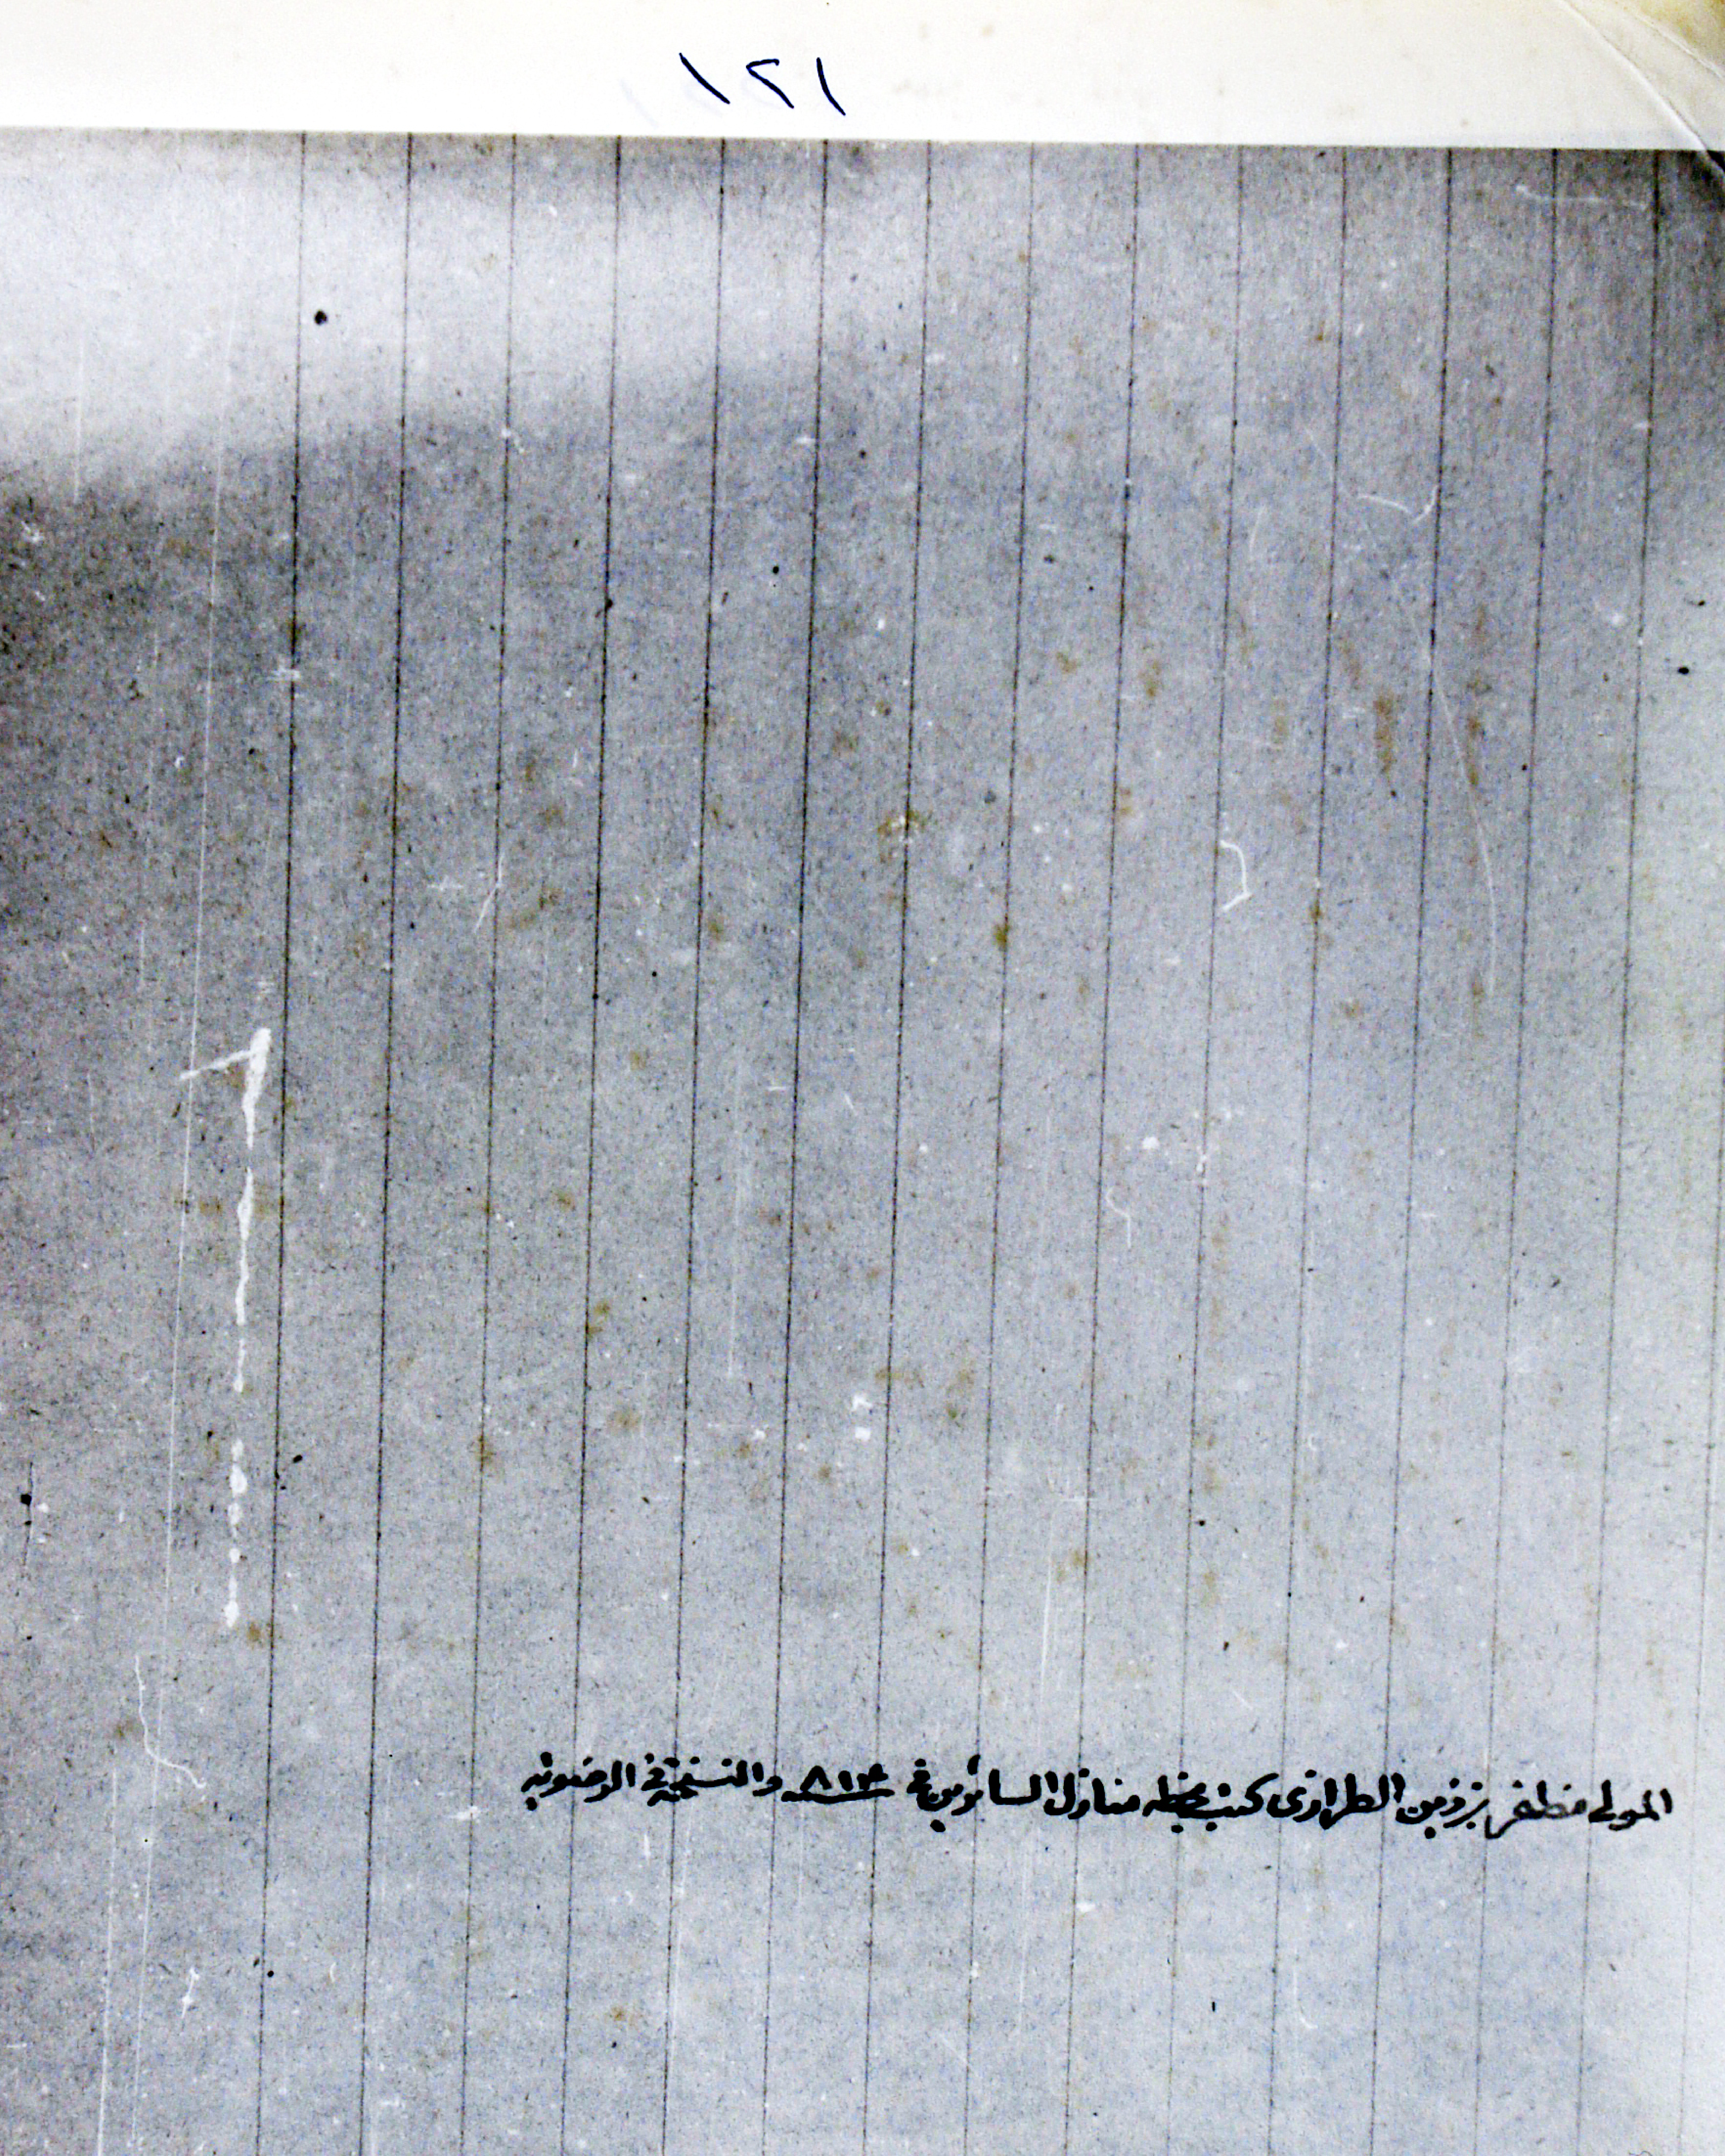 ١٢١
المولى مظفر بن زين الطرازى كتب بخطه منازل السائرين فى ٨١٤ والنسخة فى الرضوية